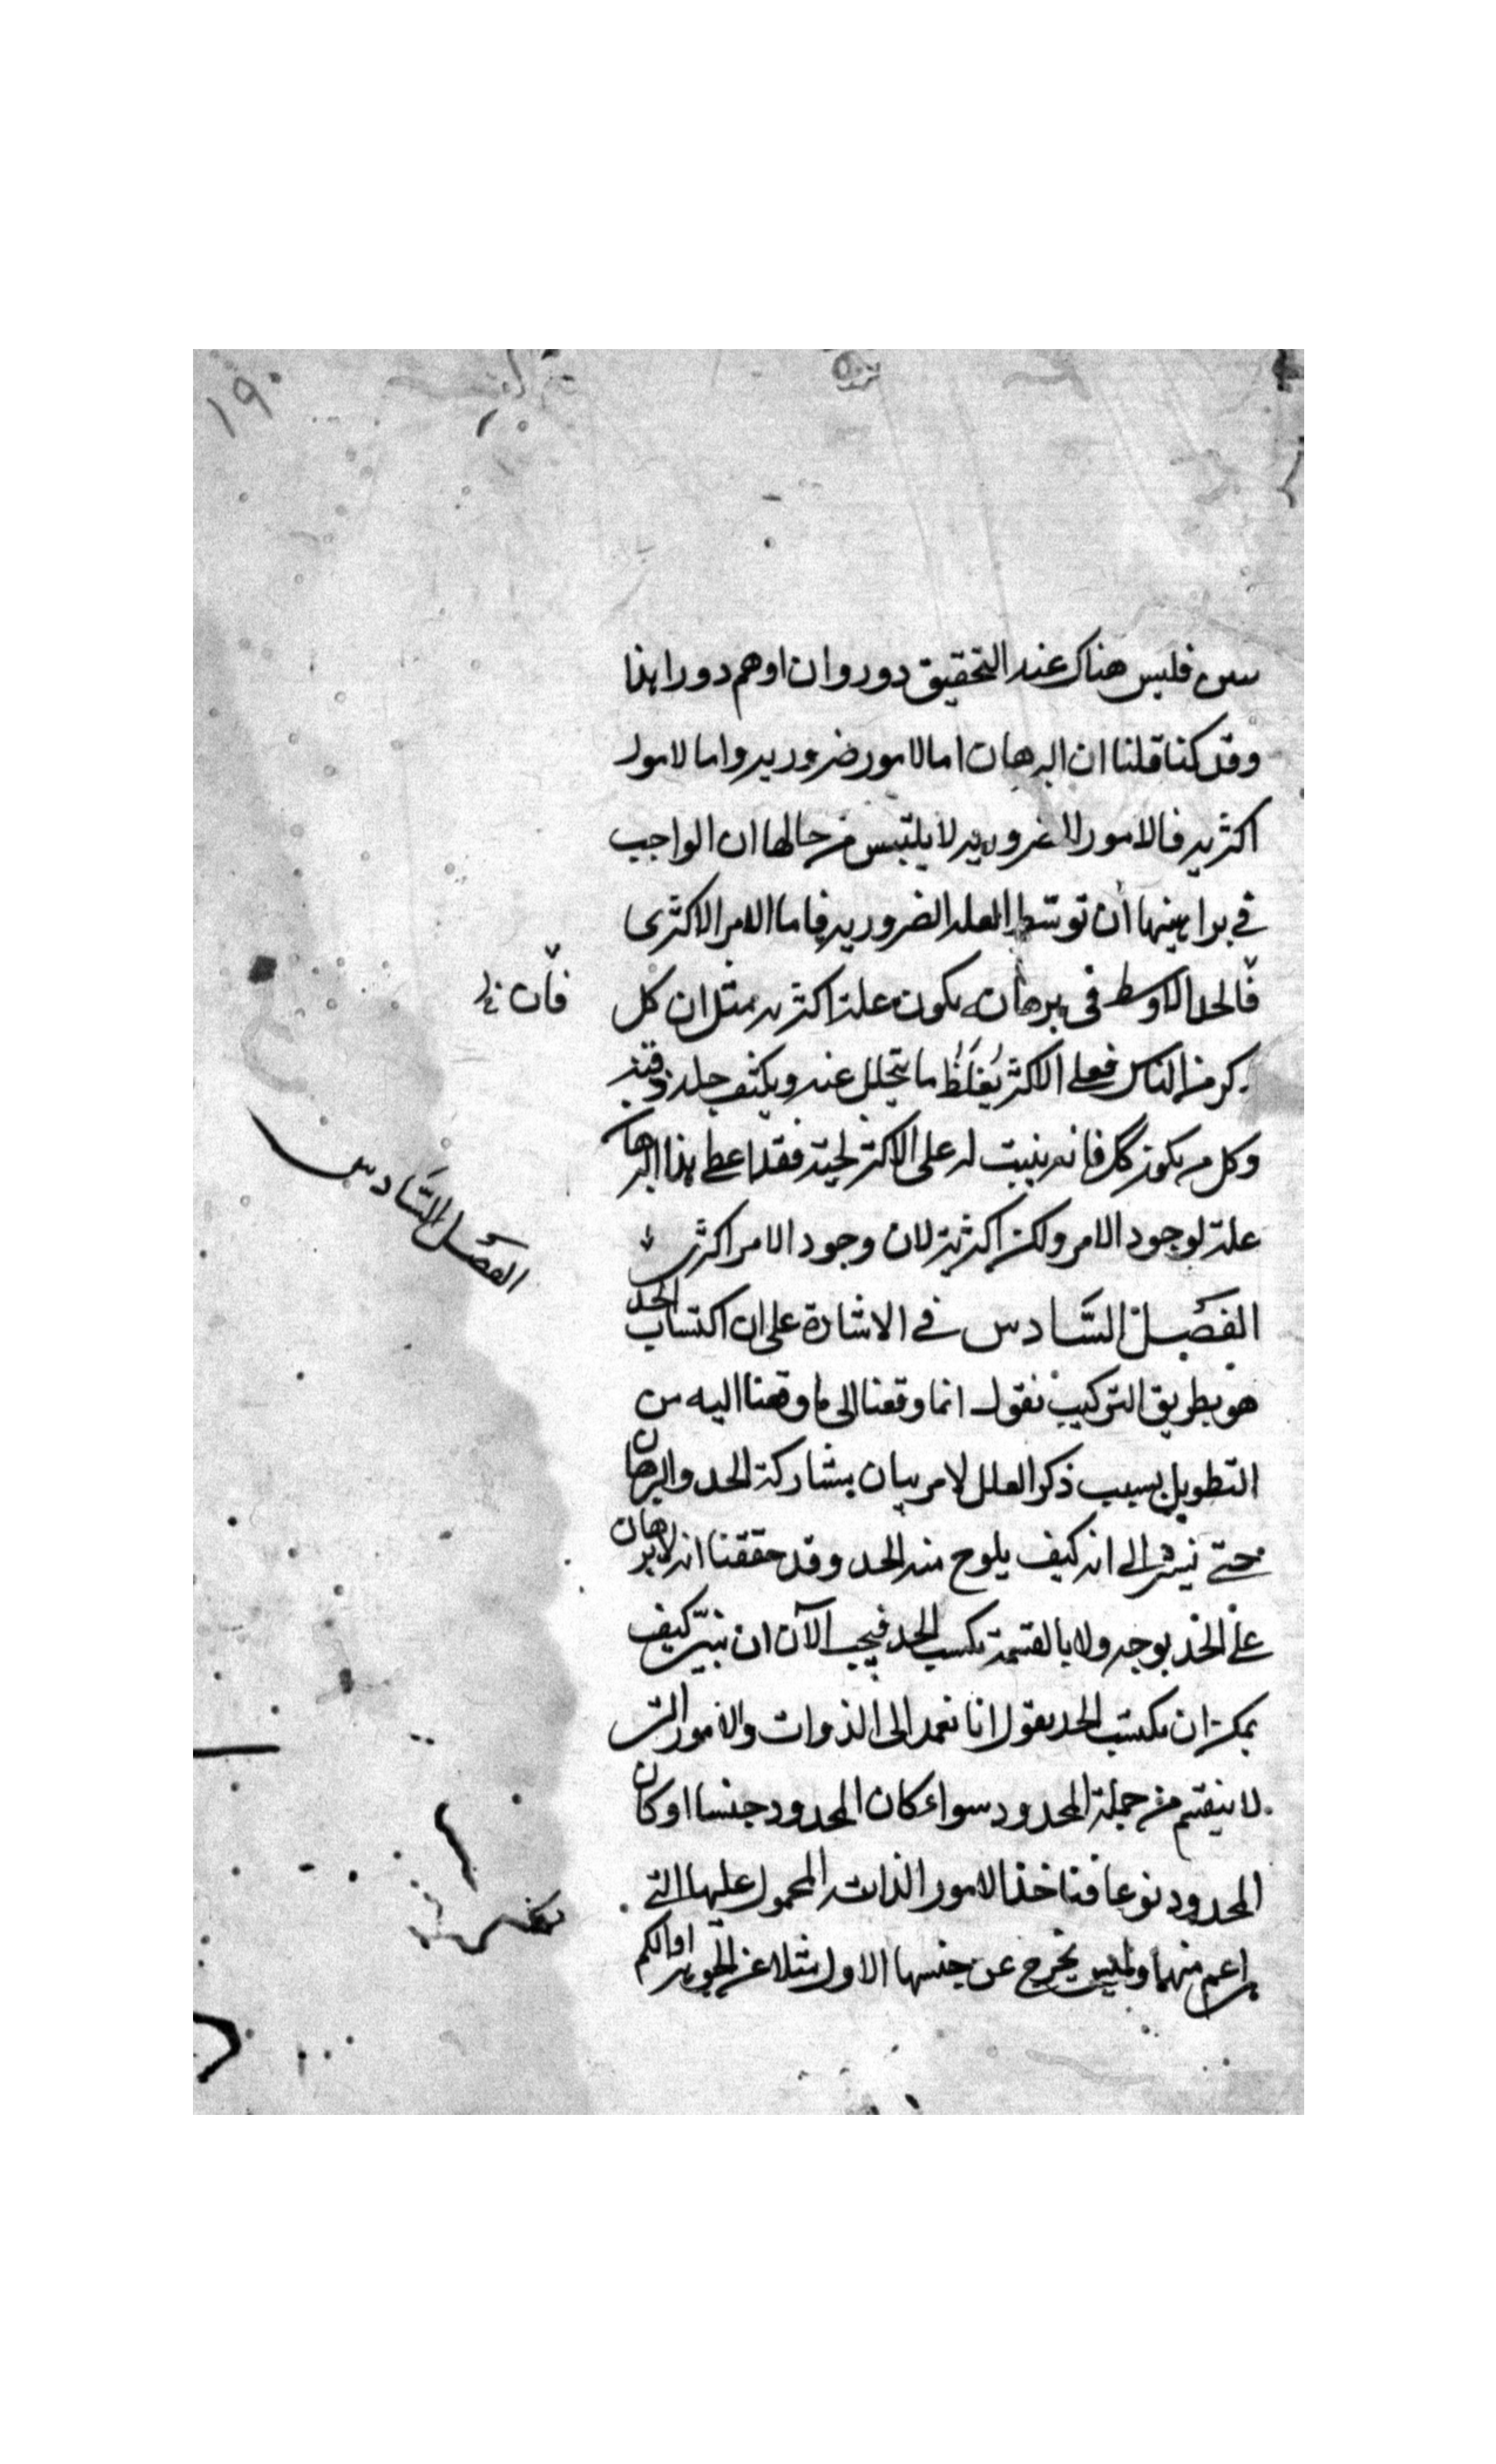 ١٩٠
فليس هناك عند التحقيق دور وان اوهم دورا هذا
وقد كنا قلنا ان البرهان اما لامور ضرورية واما لامور
اكثرية فالامور الضرورية لا يلتبس من حالها ان الواجب
في براهينها ان توسط العلة الضرورية فاما الامر الاكثرى
فالحد الاوسط فى برهانه يكون علة اكثرية مثل ان كل
فان
ذكر من الناس فعلى الاكثر يغلظ ما يتحلل عنه ويكثف جلد
وكل من يكون كك فانه ينبت له على الاكثر لحية فقد اعطى هذا البرهان
علة لوجود الامر ولكن اكثرية لان وجود الامر اكثرى
الفصل السادس
الفصل السادس في الاشارة على ان اكتساب الحد
هو بطريق التركيب نقول انما وقعنا الى ما وقعنا اليه من
التطويل بسبب ذكر العلل لامر بيان مشاركة الحد والبرهان
حتى نشير الى انه كيف يلوح منه الحد وقد حققنا انه لا برهان
على الحد بوجه ولا بالقسمة يكتسب الحد فيجب الآن ان نبين كيف
يمكن ان يكتسب الحد نقول انا نعمد الى الذوات والامور التى
لا ينقسم من جملة المحدود سواء كان المحدود جنسا او كان
المحدود نوعا فناخذ الامور الذاتية المحمول عليها التى
هى اعم منها وليس يخرج عن جنسها الاول مثلا عن الجوهر او الكم